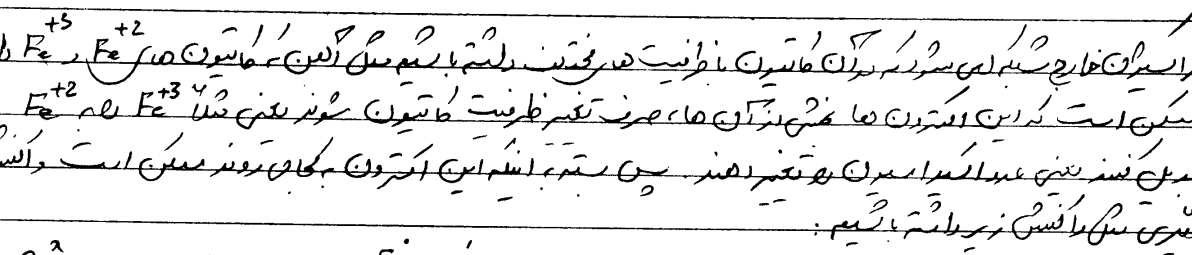 اکسیژن خارج شبکه می شود که در آن کاتیون با ظرفیت های مختلف داشته باشیم مثل آهن که کاتیون های Fe+2 و Fe+3
ممکن است که این الکترون ها بخشی از آن ها، صرف تغییر ظرفیت کاتیون شوند یعنی مثلاً Fe+3 را به Fe+2
کنند یعنی عدد اکسیداسیون را تغییر دهند. پس بسته به اینکه این الکترون به کجا می روند ممکن است
مثل واکنش زیر داشته باشیم: